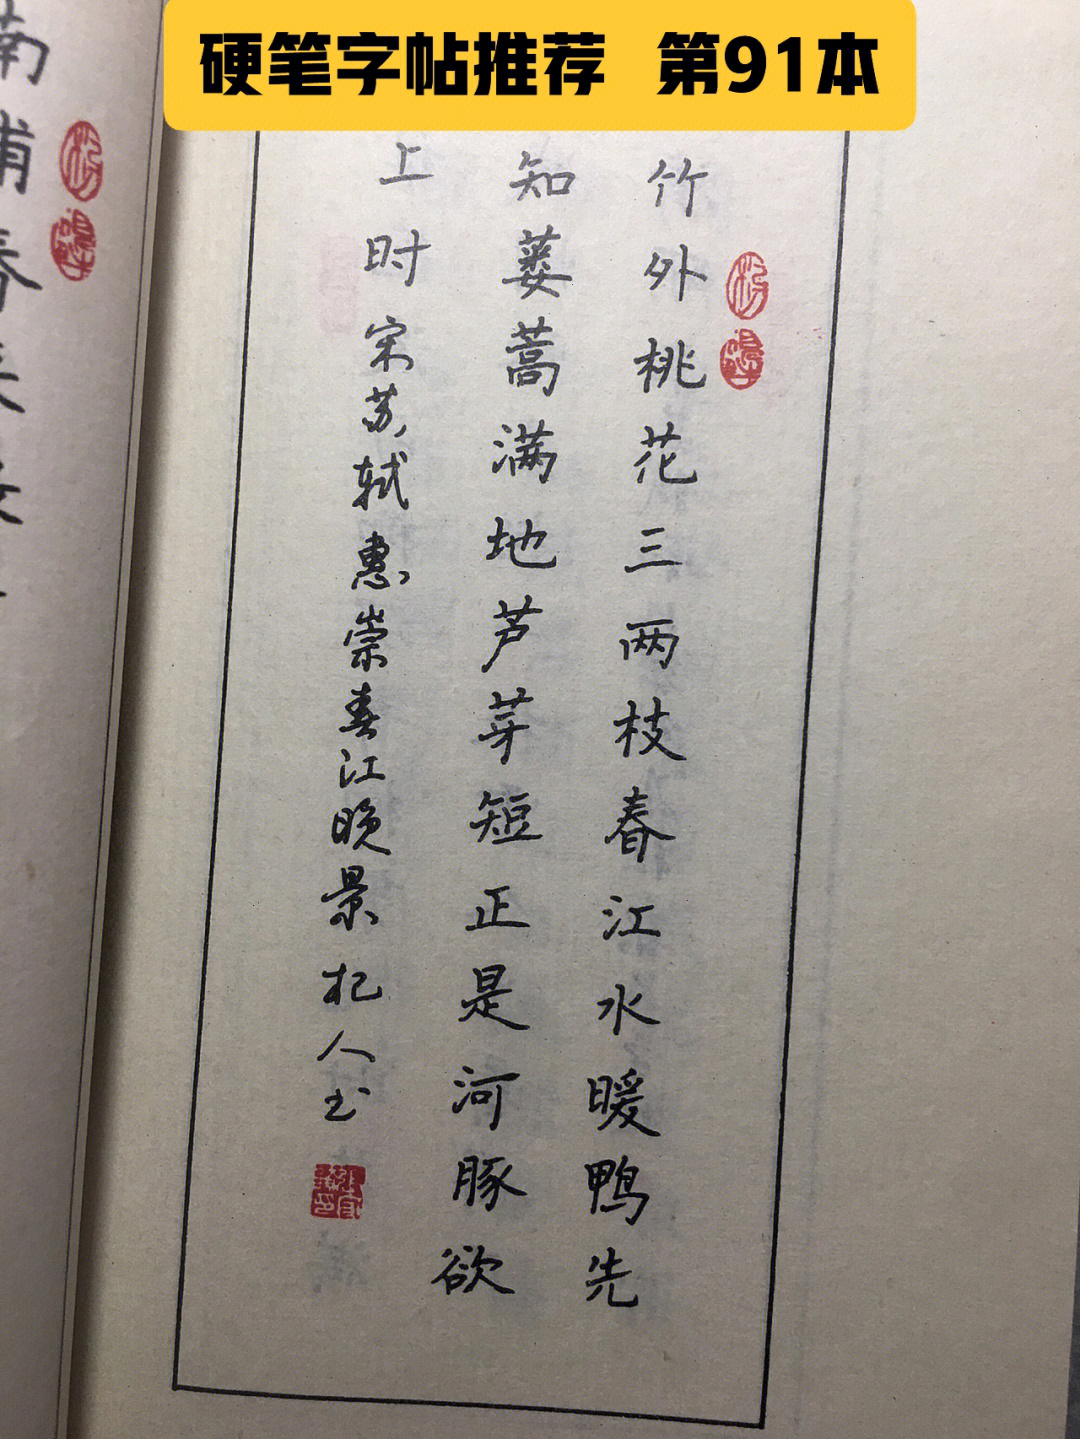 硬笔字帖推荐 第91本
竹外桃花三两枝春江水暖鸭先
知蒌蒿满地芦芽短正是河豚欲
上时 宋苏轼惠崇春江晚景 杞人书
南浦春来